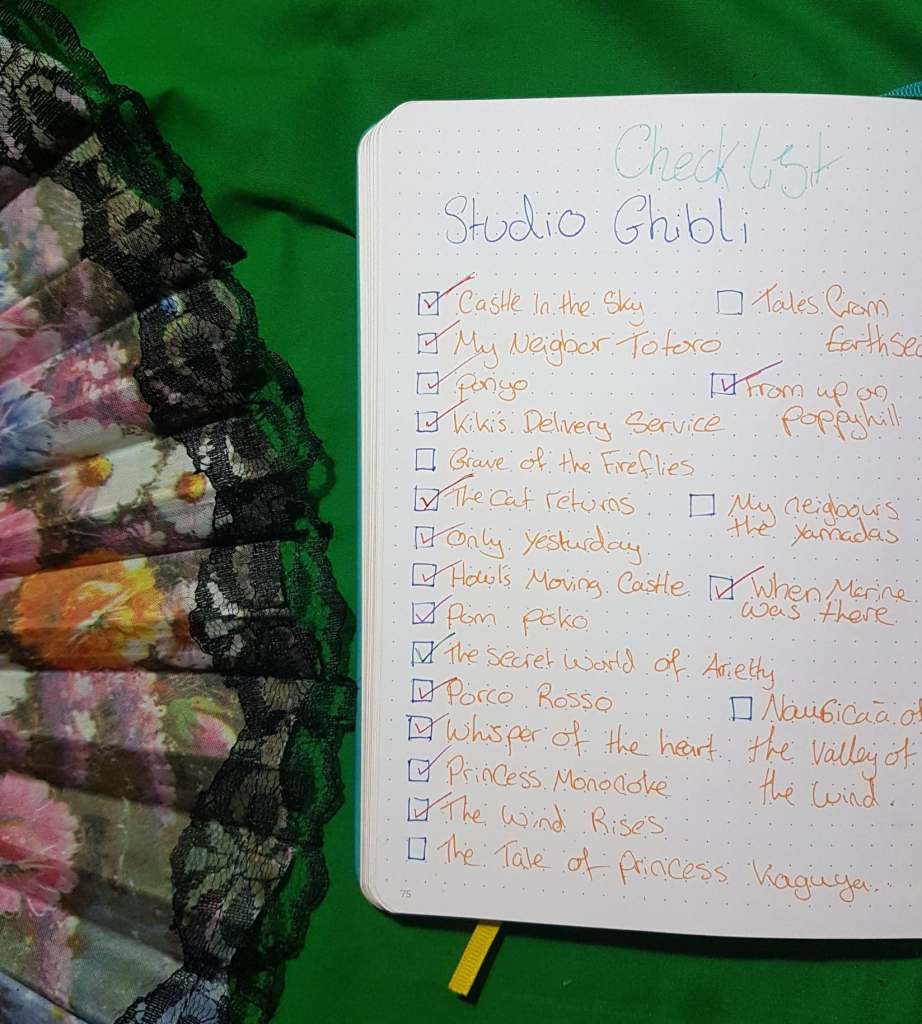 Check list
Studio Ghibli
Castle In the Sky
My Neigbor Totoro
Ponyo
Kiki's Delivery Service
Grave of the Fireflies
The cat returns
Only yesturday
Howl's Moving Castle
Pom poko
The secret world of Arietty
Porco Rosso
Whisper of the heart
Princess Mononoke
The Wind Rises
The Tale of princess Kaguya.
Tales from
Earthsea
From up on
poppyhill
My neigbours
the yamadas
When Marine
was there
Nausicaä of
the valley of
the wind.
75